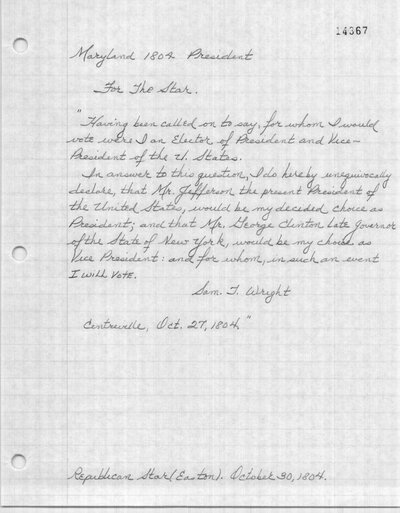 14367
Maryland 1804 President
For The Star.
"Having been called on to say, for whom I would
vote were I an Elector of President and Vice-
President of the U. States.
In answer to this question, I do hereby unequivocally
declare, that Mr. Jefferson the present President of
the United States, would be my decided choice as
President; and that Mr. George Clinton late Governor
of the State of New York, would be my choice as
Vice President: and for whom, in such an event
I will vote.
Sam. T. Wright
Centreville, Oct. 27, 1804."
Republican Star (Easton). October 30, 1804.